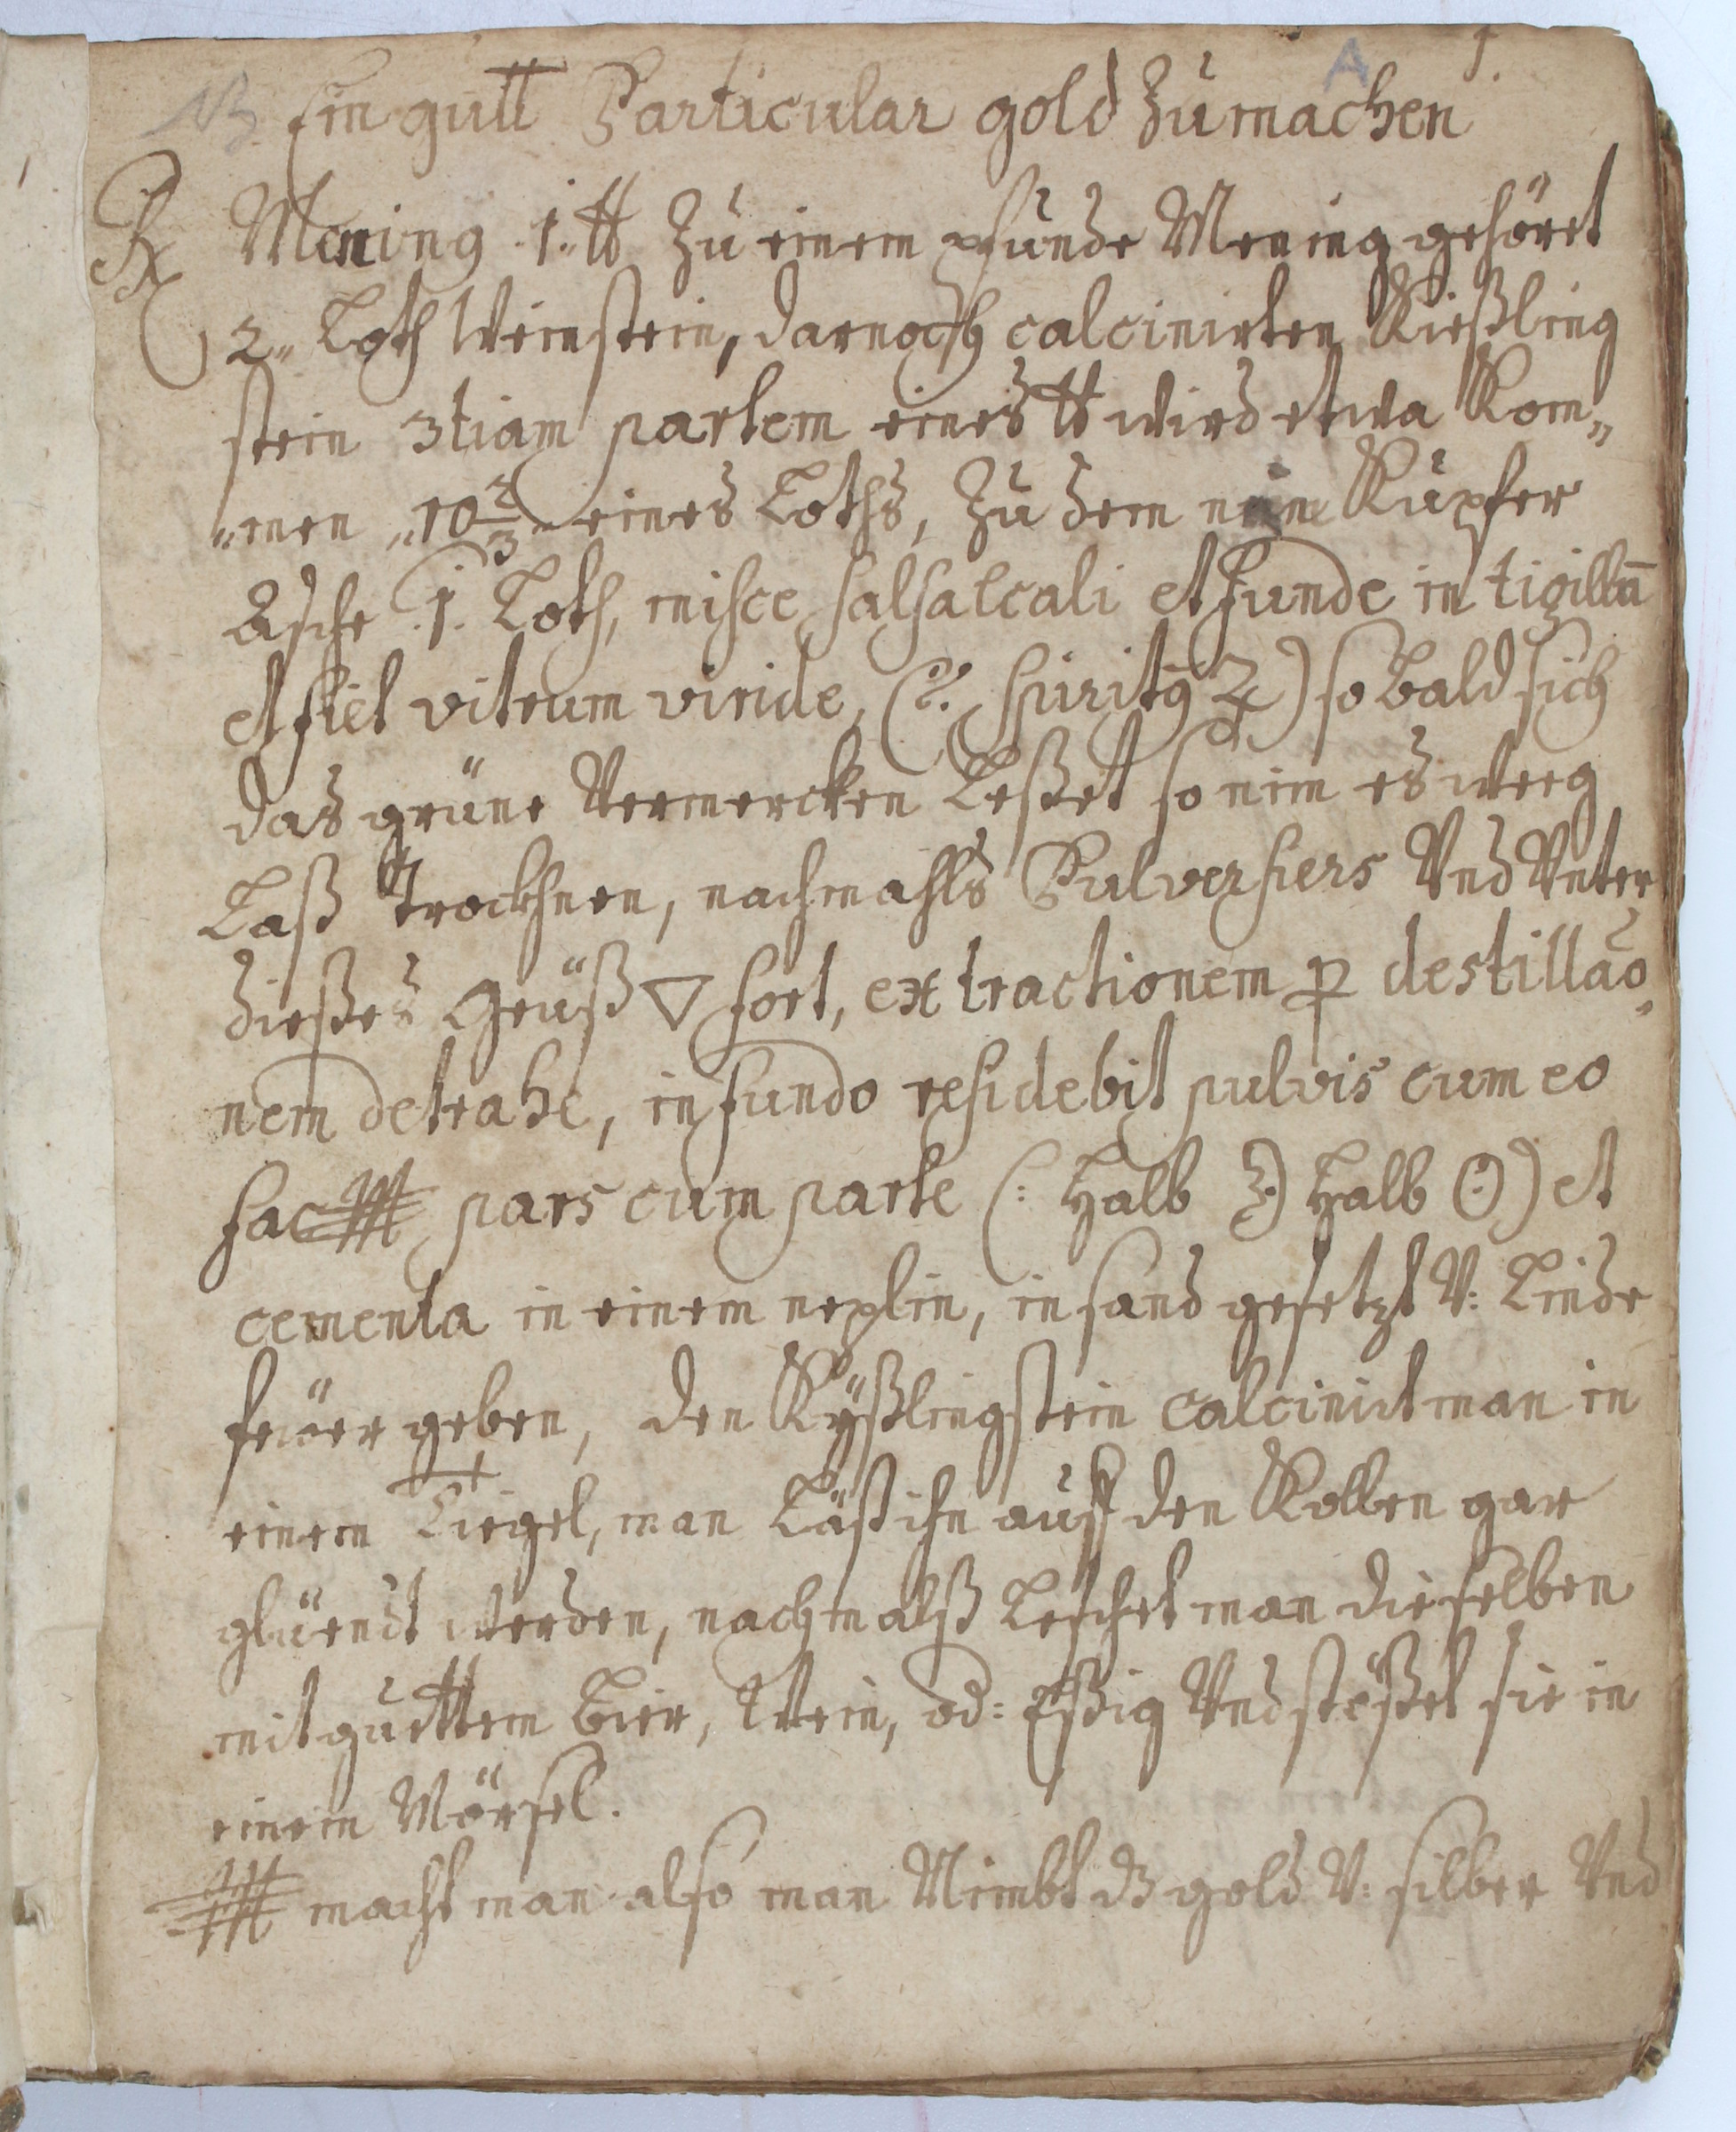 A 1.
NB. Ein gutt Particular gold Zumachen
℞ Mening .1. ℔ Zu einem pfunde Mening gehöret
2„ Loth Weinstein, darnach calcinirten Kießling
stein 3tiam partem eines ℔ wird etwa Kom„
„men „10 2/3 eines Loths, Zu dem nim Kupfer
Asche .1. Loth, misce salsalcali et funde in tigillū
et fiet vitrum viride, (: Spiritꝰ ♃) so bald sich
das grüne Vermercken Leßet so nim es weeg
Laß Trockhnen, nachmahls Pulversiers Vnd Vnter
dießes Geuß 🜄 fort, extractionem ꝑ destillaõ„
nem detrahe, in fundo residebit pulvis cum eo
fac pars cum parte (: Halb ☽ Halb ☉) et
cementa in einem neplin, in sand gesetzt V: Linde
feüer geben, den Kÿßlingstein calcinirt man in
einem Tiegel, man Läst ihn auff den Kollen gar
glüendt werden, nachmalß Leschet man dieselben
mit guttem Bier, Wein, od: Eßig Vnd stößet sie in
einem Mörsel.
macht man also man Nimbt dz gold V: silber Vnd